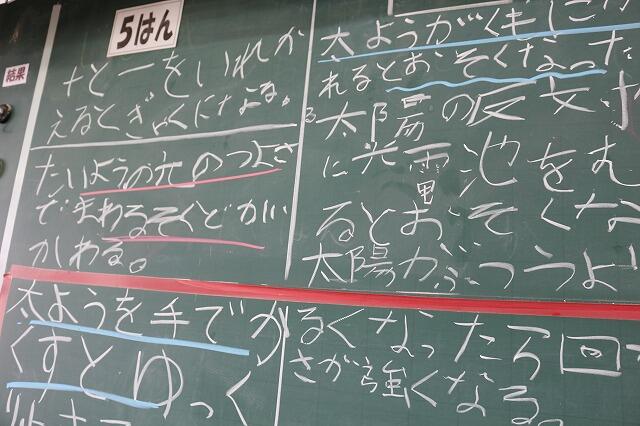 5はん
結果
+と一をいれか
えるとぎゃくになる。
たいようの光のつよさ
でまわるそくどがい
かわる。
太ようがくもにか
れるとおそくなった
太陽の反
に光電池をむ
るとおそくな
太陽がぶつうよ
太ようを手でか
くすとゆっく
るくなったら回
さが強くなる。